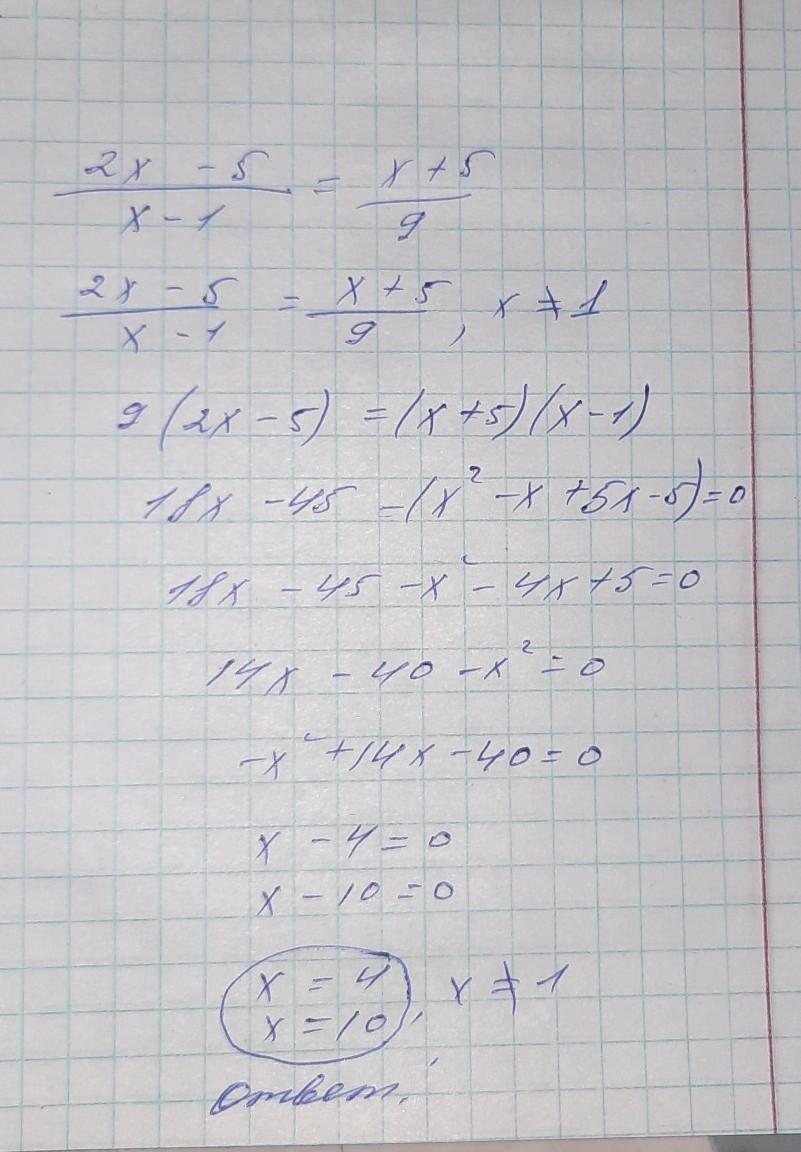 (2x - 5)/(x - 1) = (x + 5)/9
(2x - 5)/(x - 1) = (x + 5)/9, x ≠ 1
9(2x - 5) = (x + 5)(x - 1)
18x - 45 - (x² - x + 5x - 5) = 0
18x - 45 - x² - 4x + 5 = 0
14x - 40 - x² = 0
-x² + 14x - 40 = 0
x - 4 = 0
x - 10 = 0
x = 4
x = 10, x ≠ 1
ответ.